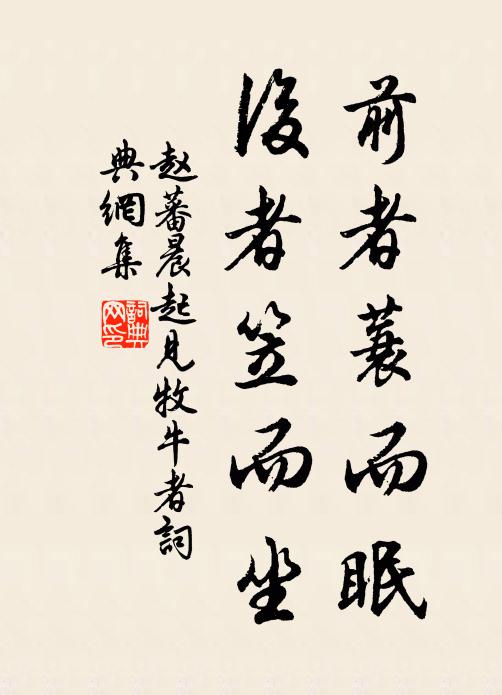 前者蓑而眠
後者笠而坐
赵蕃晨起见牧牛者詞
典網集
詞典網印